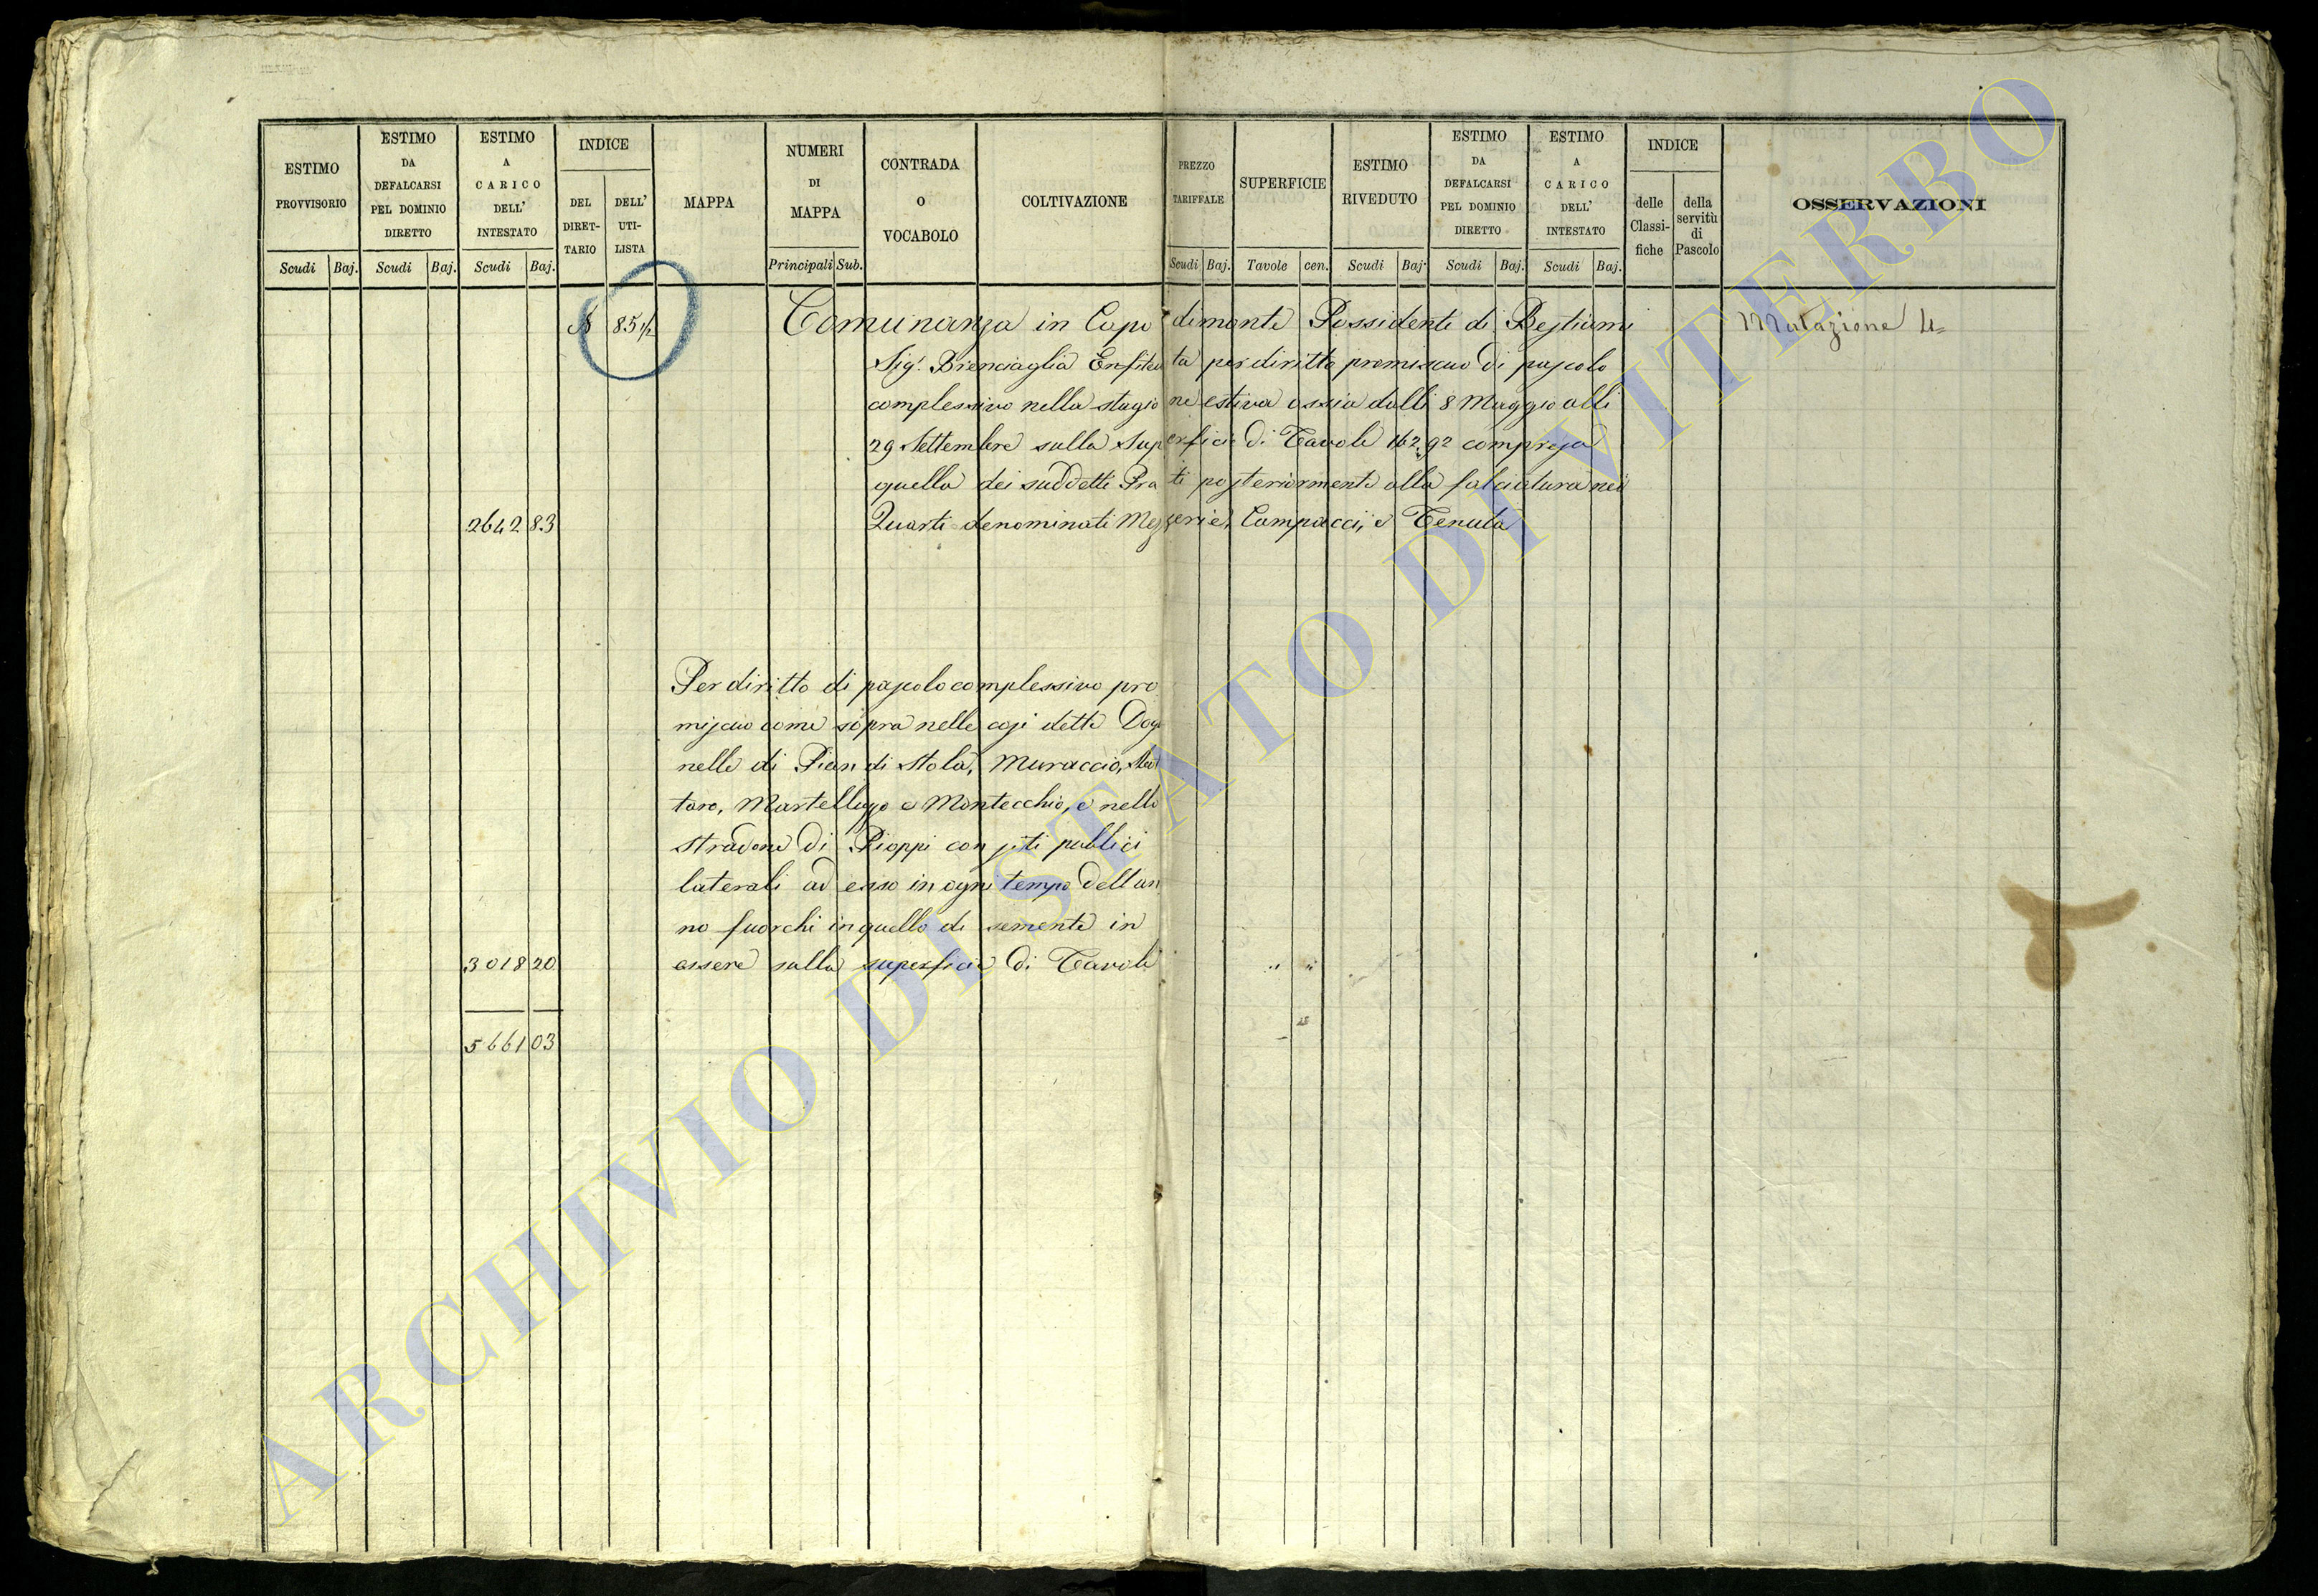 ESTIMO PROVVISORIO
ESTIMO DA DEFALCARSI PEL DOMINIO DIRETTO
ESTIMO A CARICO DELL' INTESTATO
INDICE
DEL DIRET-TARIO
DELL' UTI-LISTA
MAPPA
NUMERI DI MAPPA
CONTRADA O VOCABOLO
COLTIVAZIONE
PREZZO TARIFFALE
SUPERFICIE
ESTIMO RIVEDUTO
ESTIMO DA DEFALCARSI PEL DOMINIO DIRETTO
ESTIMO A CARICO DELL' INTESTATO
INDICE
delle Classi-fiche
della servitù di Pascolo
OSSERVAZIONI
Scudi Baj. Scudi Baj. Scudi Baj. Principali Sub. Scudi Baj. Tavole cen. Scudi Baj. Scudi Baj. Scudi Baj.
85 1/2 Comunanza in Capodimonte Possidenti di Bestiami Mutazione 4
Sig. Brenciaglia Enfiteuta per diritto promiscuo di pascolo
complessivo nella stagione estiva ossia dalli 8 Maggio alli
29 Settembre sulla superficie di Tavole 162,92 compresa
quella dei suddetti Prati posteriormente alla falciatura nei
2642 83 Quarti denominati Mezzerie, Campaccii, e Tenuta
Per diritto di pascolo complessivo pro
miscuo come sopra nelle così dette Doga
nelle di Pian di Stola, Muraccio,
taro, Martelluzzo e Montecchio, e nello
stradone di Pioppi con siti publici
laterali ad esso in ogni tempo dell'an
no fuorchè in quello di sementa in
3018 20 essere sulla superficie di Tavole " "
5661 03
ARCHIVIO DI STATO DI VITERBO